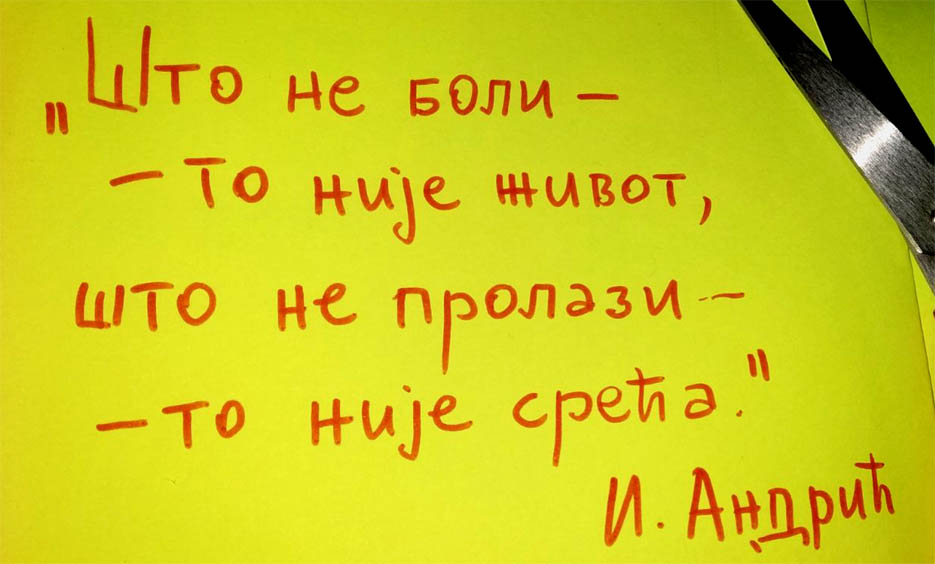 „Што не боли –
– то није живот,
што не пролази –
– то није срећа."
И. Андрић